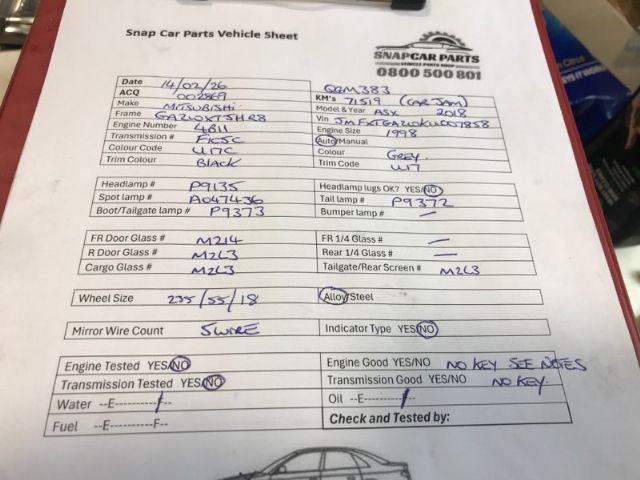 Snap Car Parts Vehicle Sheet
SNAPCAR PARTS
VEHICLE PARTS SHOP
0800 500 801
Date 14/02/26 QGM383
ACQ 002869 KM's 71519 (CAR JAM)
Make MITSUBISHI Model & Year ASX 2018
Frame GA2WXTSHR8 Vin JMFXTGA2WKU007858
Engine Number 4B11 Engine Size 1998
Transmission # F1C5C Auto/Manual
Colour Code U17C Colour GREY
Trim Colour BLACK Trim Code U17
Headlamp # P9135 Headlamp lugs OK? YES/NO
Spot lamp # A047436 Tail lamp # P9372
Boot/Tailgate lamp # P9373 Bumper lamp # —
FR Door Glass # M214 FR 1/4 Glass # —
R Door Glass # M2L3 Rear 1/4 Glass # —
Cargo Glass # M2L3 Tailgate/Rear Screen # M2L3
Wheel Size 235/55/18 Alloy/Steel
Mirror Wire Count 5 WIRE Indicator Type YES/NO
Engine Tested YES/NO Engine Good YES/NO NO KEY SEE NOTES
Transmission Tested YES/NO Transmission Good YES/NO NO KEY.
Water --E----------F-- Oil --E----------F--
Fuel --E----------F-- Check and Tested by: